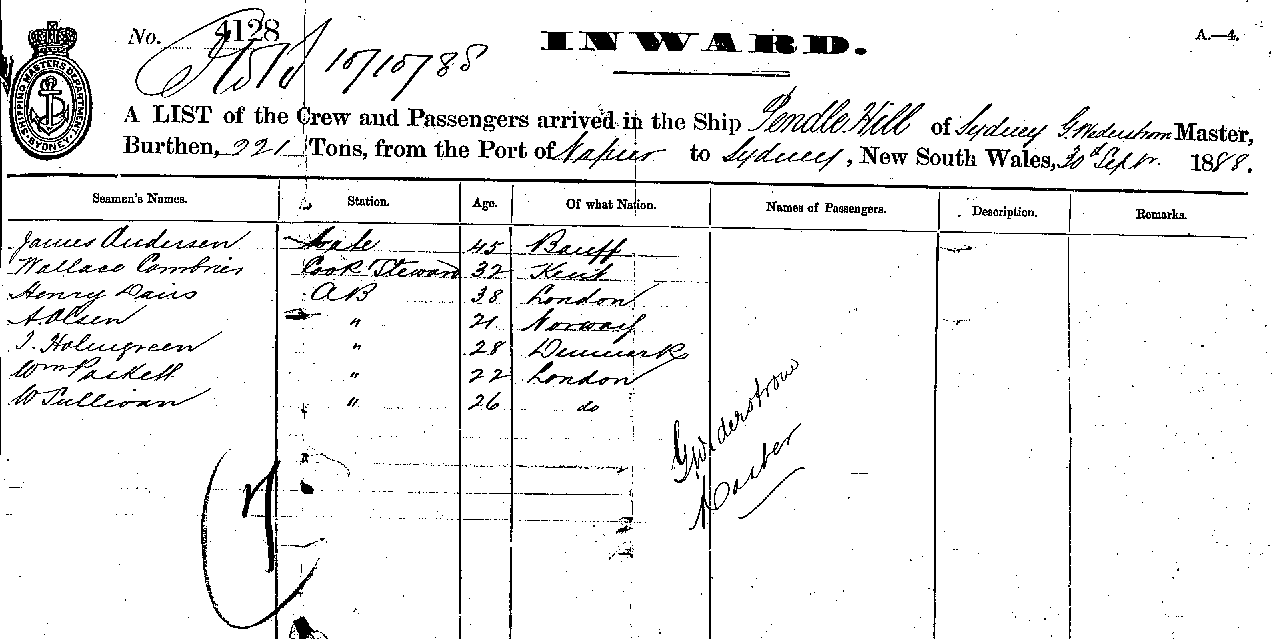 No. 4128
INWARD.
A.—4.
10/10/88
SHIPPING MASTERS DEPARTMENT SYDNEY
A LIST of the Crew and Passengers arrived in the Ship Pendle Hill of Sydney G Wederstrom Master,
Burthen, 221 Tons, from the Port of Napier to Sydney, New South Wales, 30th Sept. 1888.
Seamen's Names. Station. Age. Of what Nation. Names of Passengers. Description. Remarks.
James Andersen Mate 45 Banff
Wallace Combries Cook Steward 32 Kent
Henry Davis AB 38 London
A Olsen " 21 Norway
J. Holmgreen " 28 Denmark
Wm Paskett " 22 London
W Sullivan " 26 do
G Wederstrom
Master
7